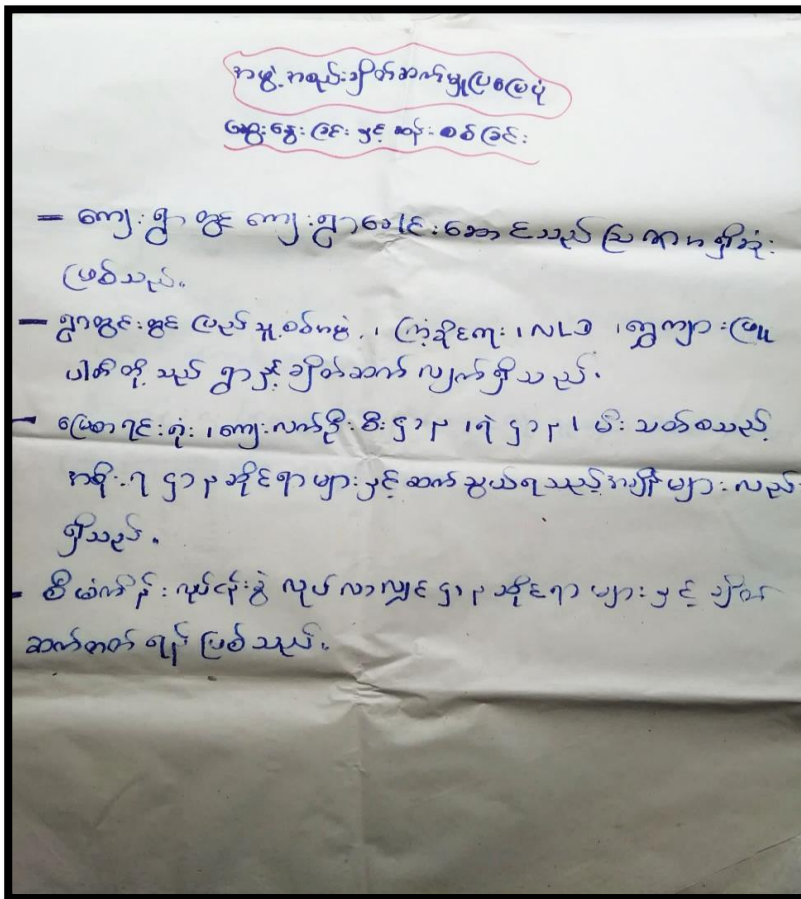 အဖွဲ့အစည်းချိတ်ဆက်မှုပြမြေပုံ
ဆွေးနွေးခြင်းနှင့် ဆန်းစစ်ခြင်း
- ကျေးရွာတွင် ကျေးရွာခေါင်းဆောင်သည် ဩဇာအရှိဆုံး
ဖြစ်သည်။
- ရွာတွင်းတွင် ပြည်သူ့စစ်အဖွဲ့၊ ကြံ့ခိုင်ရေး၊ NLD ၊ ကျားဖြူ
ပါတီတို့သည် ရွာနှင့်ချိတ်ဆက်လျက်ရှိသည်။
- မြေစာရင်းရုံး၊ ကျေးလက်ဦးစီးဌာန၊ ရဲဌာန၊ မီးသတ်စသည့်
အစိုးရဌာနဆိုင်ရာများနှင့်ဆက်သွယ်ရသည့်အချိန်များလည်း
ရှိသည်။
- စီမံကိန်းလုပ်ငန်းခွဲ လုပ်လာလျှင်ဌာနဆိုင်ရာများနှင့် ချိတ်
ဆက်တတ်ရန် ဖြစ်သည်။